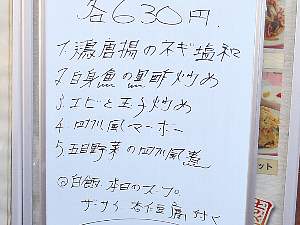 各630円.
1.鶏唐揚のネギ塩和
2.白身魚の黒酢炒め
3.エビと玉子炒め
4.四川風マーボー
5.五目野菜の四川風煮
◎白飯.本日のスープ.
ザーサイ 杏仁豆腐 付く
ット